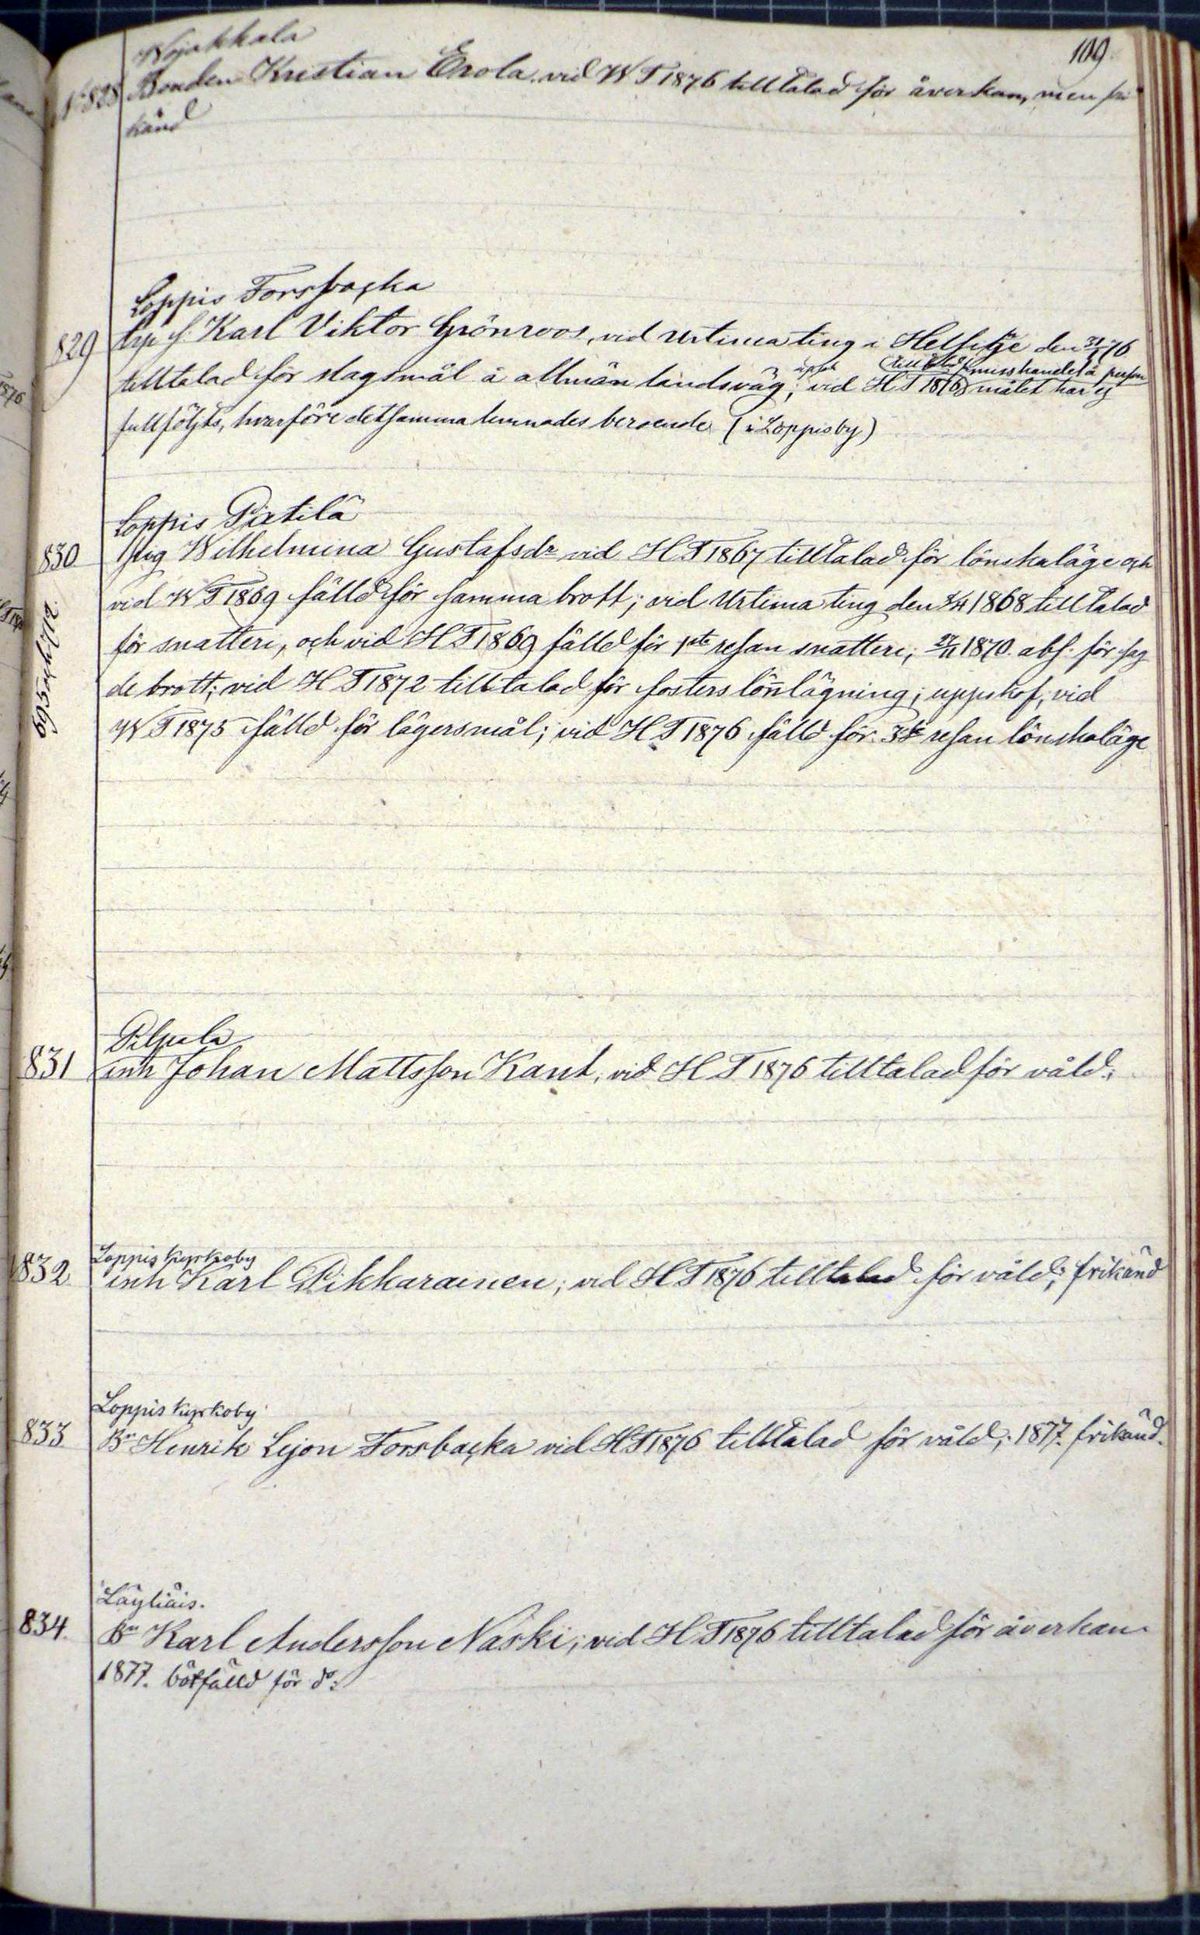 109
Wojakkala
N:828 Bonden Kristian Erola vid WT 1876 tilltalad för åverkan, men fri
känd
Loppis Forsbacka
829 trp s. Karl Viktor Grönroos, vid urtima ting i Helsitje den 31/ 76
tilltalad för slagsmål å allmän landsväg, uppsk vid HT 1876 målet har ej
tilltalad misshandel å person
fullföljts, hvarföre detsamma lemnades beroende (i Loppis by)
Loppis Pietilä
830 pig Wilhelmina Gustafsdr vid HT 1867 tilltalad för lönskaläge och
vid WT 1869 fälld för samma brott; vid Urtima ting den 1868 tilltalad
för snatteri, och vid HT 1869 fälld för 1sta resan snatteri; 1870 abs. för sag
de brott; vid HT 1872 tilltalad för fosters lönnlägning; uppskof, vid
WT 1875 fälld för lägersmål; vid HT 1876 fälld för 3dje resan lönskaläge
Pilpala
831 inh Johan Mattsson Kant, vid HT 1876 tilltalad för våld;
Loppis kyrkoby
832 inh Karl Pikkarainen; vid HT 1876 tilltalad för våld; frikänd
Loppis kyrkoby
833 Bn Henrik Lejon Forsbacka vid HT 1876 tilltalad för våld; 1877. frikänd.
Läyliäis.
834. Bn Karl Andersson Näski; vid HT 1876 tilltalad för åverkan
1877. bötfälld för do: